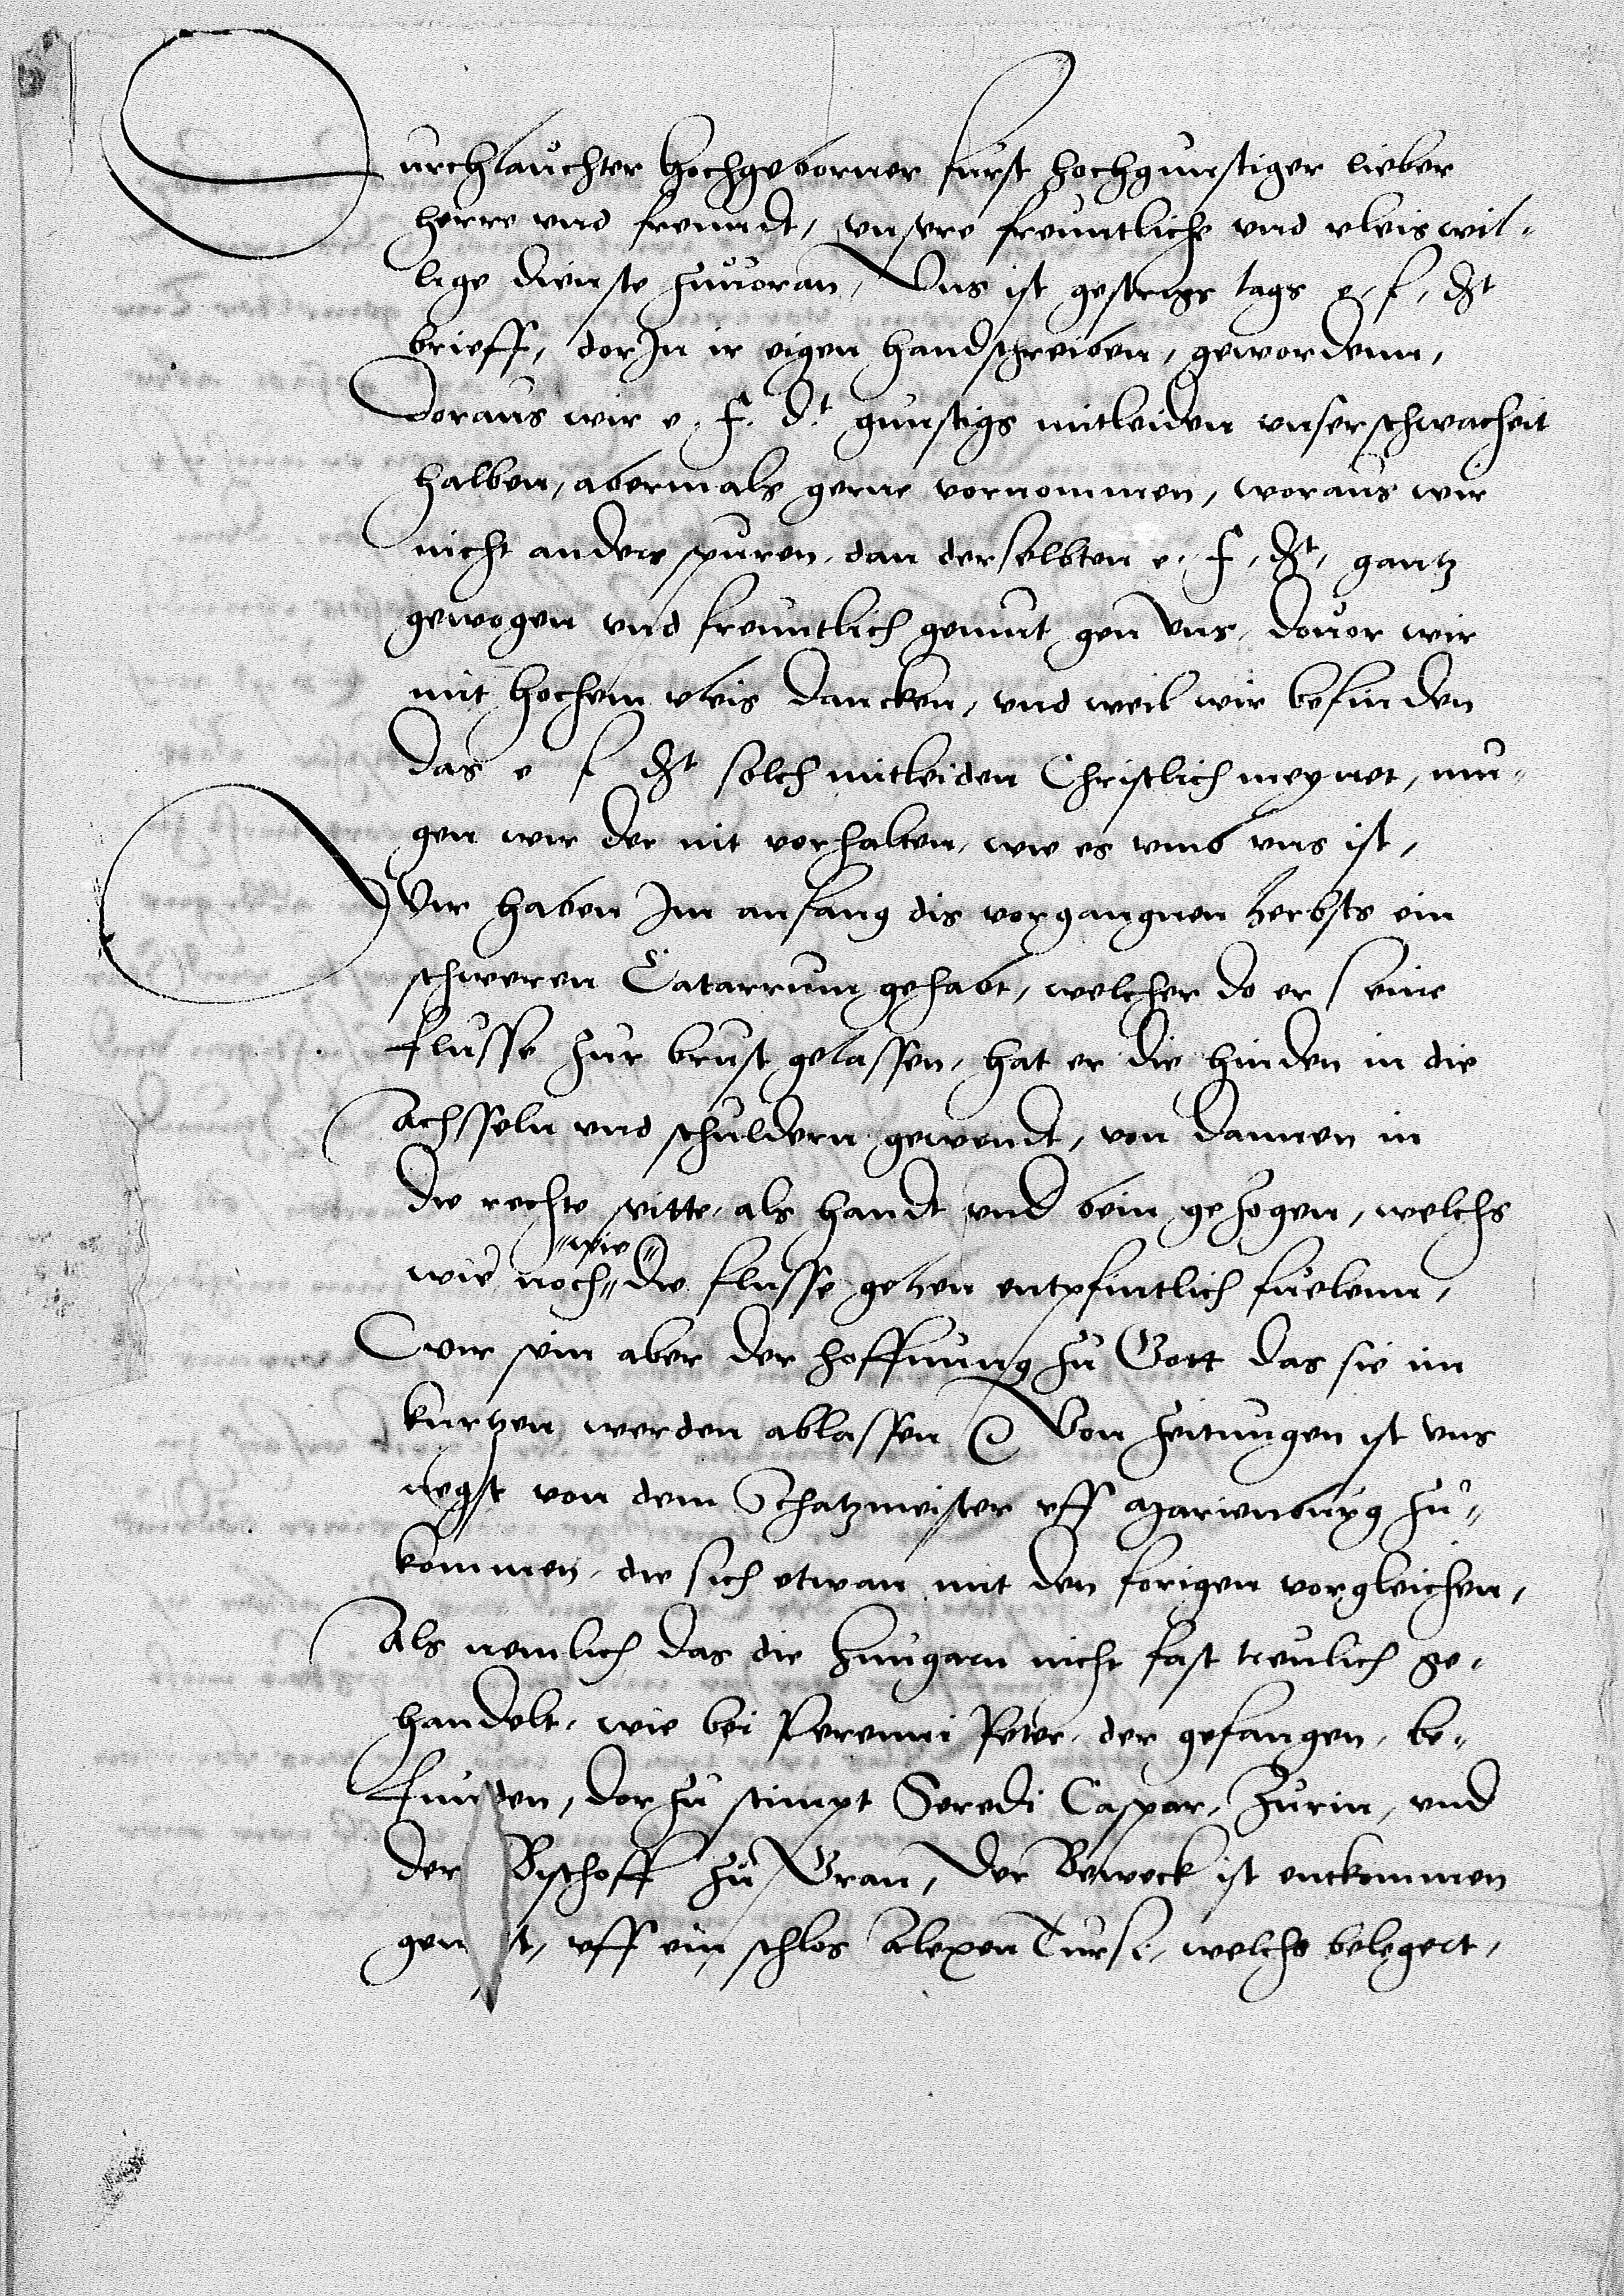 Durchlauchter hochgeborner furst hochgunstiger lieber
herre vnd freundt, vnsere freuntliche vnd vleis wil-
lige dienste zuuoran, Vns ist gesterigs tags e. f. dt
brieff, dorJn ir eigen handschreiben, gewordenn,
Doraus wir e. f. dt. gunstigs mitleiden vnser schwacheit
halben, abermals gerne vornommen, woraus wir
nicht anders spuren, dan derselbten e. f. dt, gantz
gewogen vnd freuntlich gemut gen vns, douor wir
mit hochem vleis dancken, vnd weil wir befinden
das e f dt solch mitleiden Christlich meynet, mu-
gen wir der nit vorhalten, wie es vmb vns ist,
Wir haben Jm anfang dis vorgangnen herbsts ein
schweren Catarrum gehabt, welcher do er seine
flusse zur brust gelassen, hat er die hinden in die
Achsseln vnd schuldern gewendt, von dannen in
die rechte seitte, als handt vnd bein gezogen, welchs
wir noch, wie die flusse gehen entpfintlich fuelenn,
Wir sein aber der hoffnung zu Gott das sie im
kurtzen werden ablassen Von zeitungen ist vns
negst von dem Schatzmeister vff Marienburg zu-
kommen, die sich etwan mit den forigen vorgleichen,
Als nemlich das die Hungarn nicht fast treulich ge-
handelt, wie bei Perenni Peter, der gefangen, be-
funden, dorzu stimpt Seredi Caspar, Zurin, vnd
der Bischoff zu Gran, Der Beweck ist entkommen
gen t, vff ein schlos Alexen Tursi, welchs belegert,